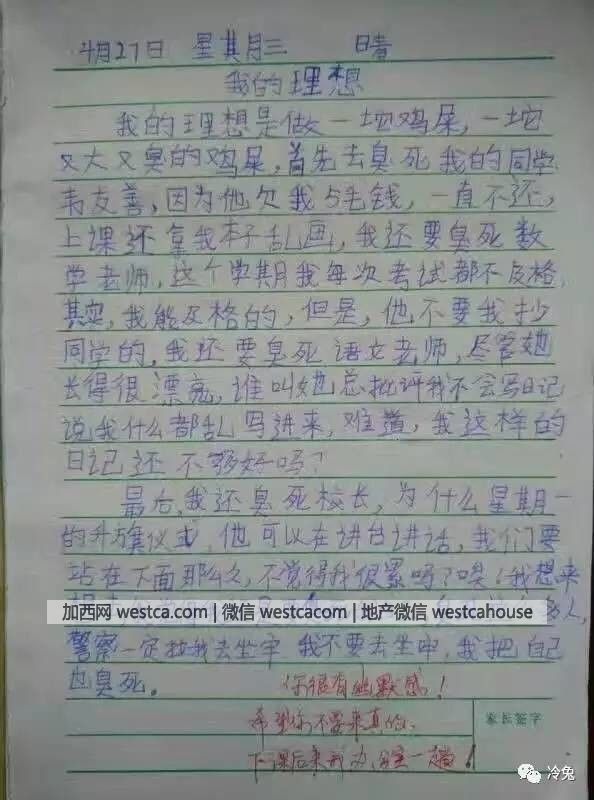 4月27日 星其月三 晴
我的理想
我的理想是做一坨鸡屎,一坨
又大又臭的鸡屎,首先去臭死我的同学
韦友善,因为他欠我5毛钱,一直不还,
上课还拿我本子乱画,我还要臭死数
学老师,这个学期我每次考试都不及格,
其实,我能及格的,但是,他不要我抄
同学的,我还要臭死语文老师,尽管她
长得很漂亮,谁叫她总批评我不会写日记
说我什么都乱写进来,难道,我这样的
日记还不够好吗?
最后,我还臭死校长,为什么星期一
的升旗仪式,他可以在讲台讲话,我们要
站在下面那么久,不觉得我很累吗?唉!我想来
加西网 westca.com | 微信 westcacom | 地产微信 westcahouse
人,
警察一定拉我去坐牢,我不要去坐牢,我把自己
也臭死。
你很有幽默感!
希望你不要来真的.
下课后来我办公室一趟!
家长签字
冷兔